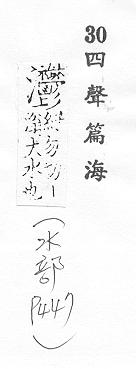 30 四聲篇海
灪
勿切
大水也
(水部
P447)